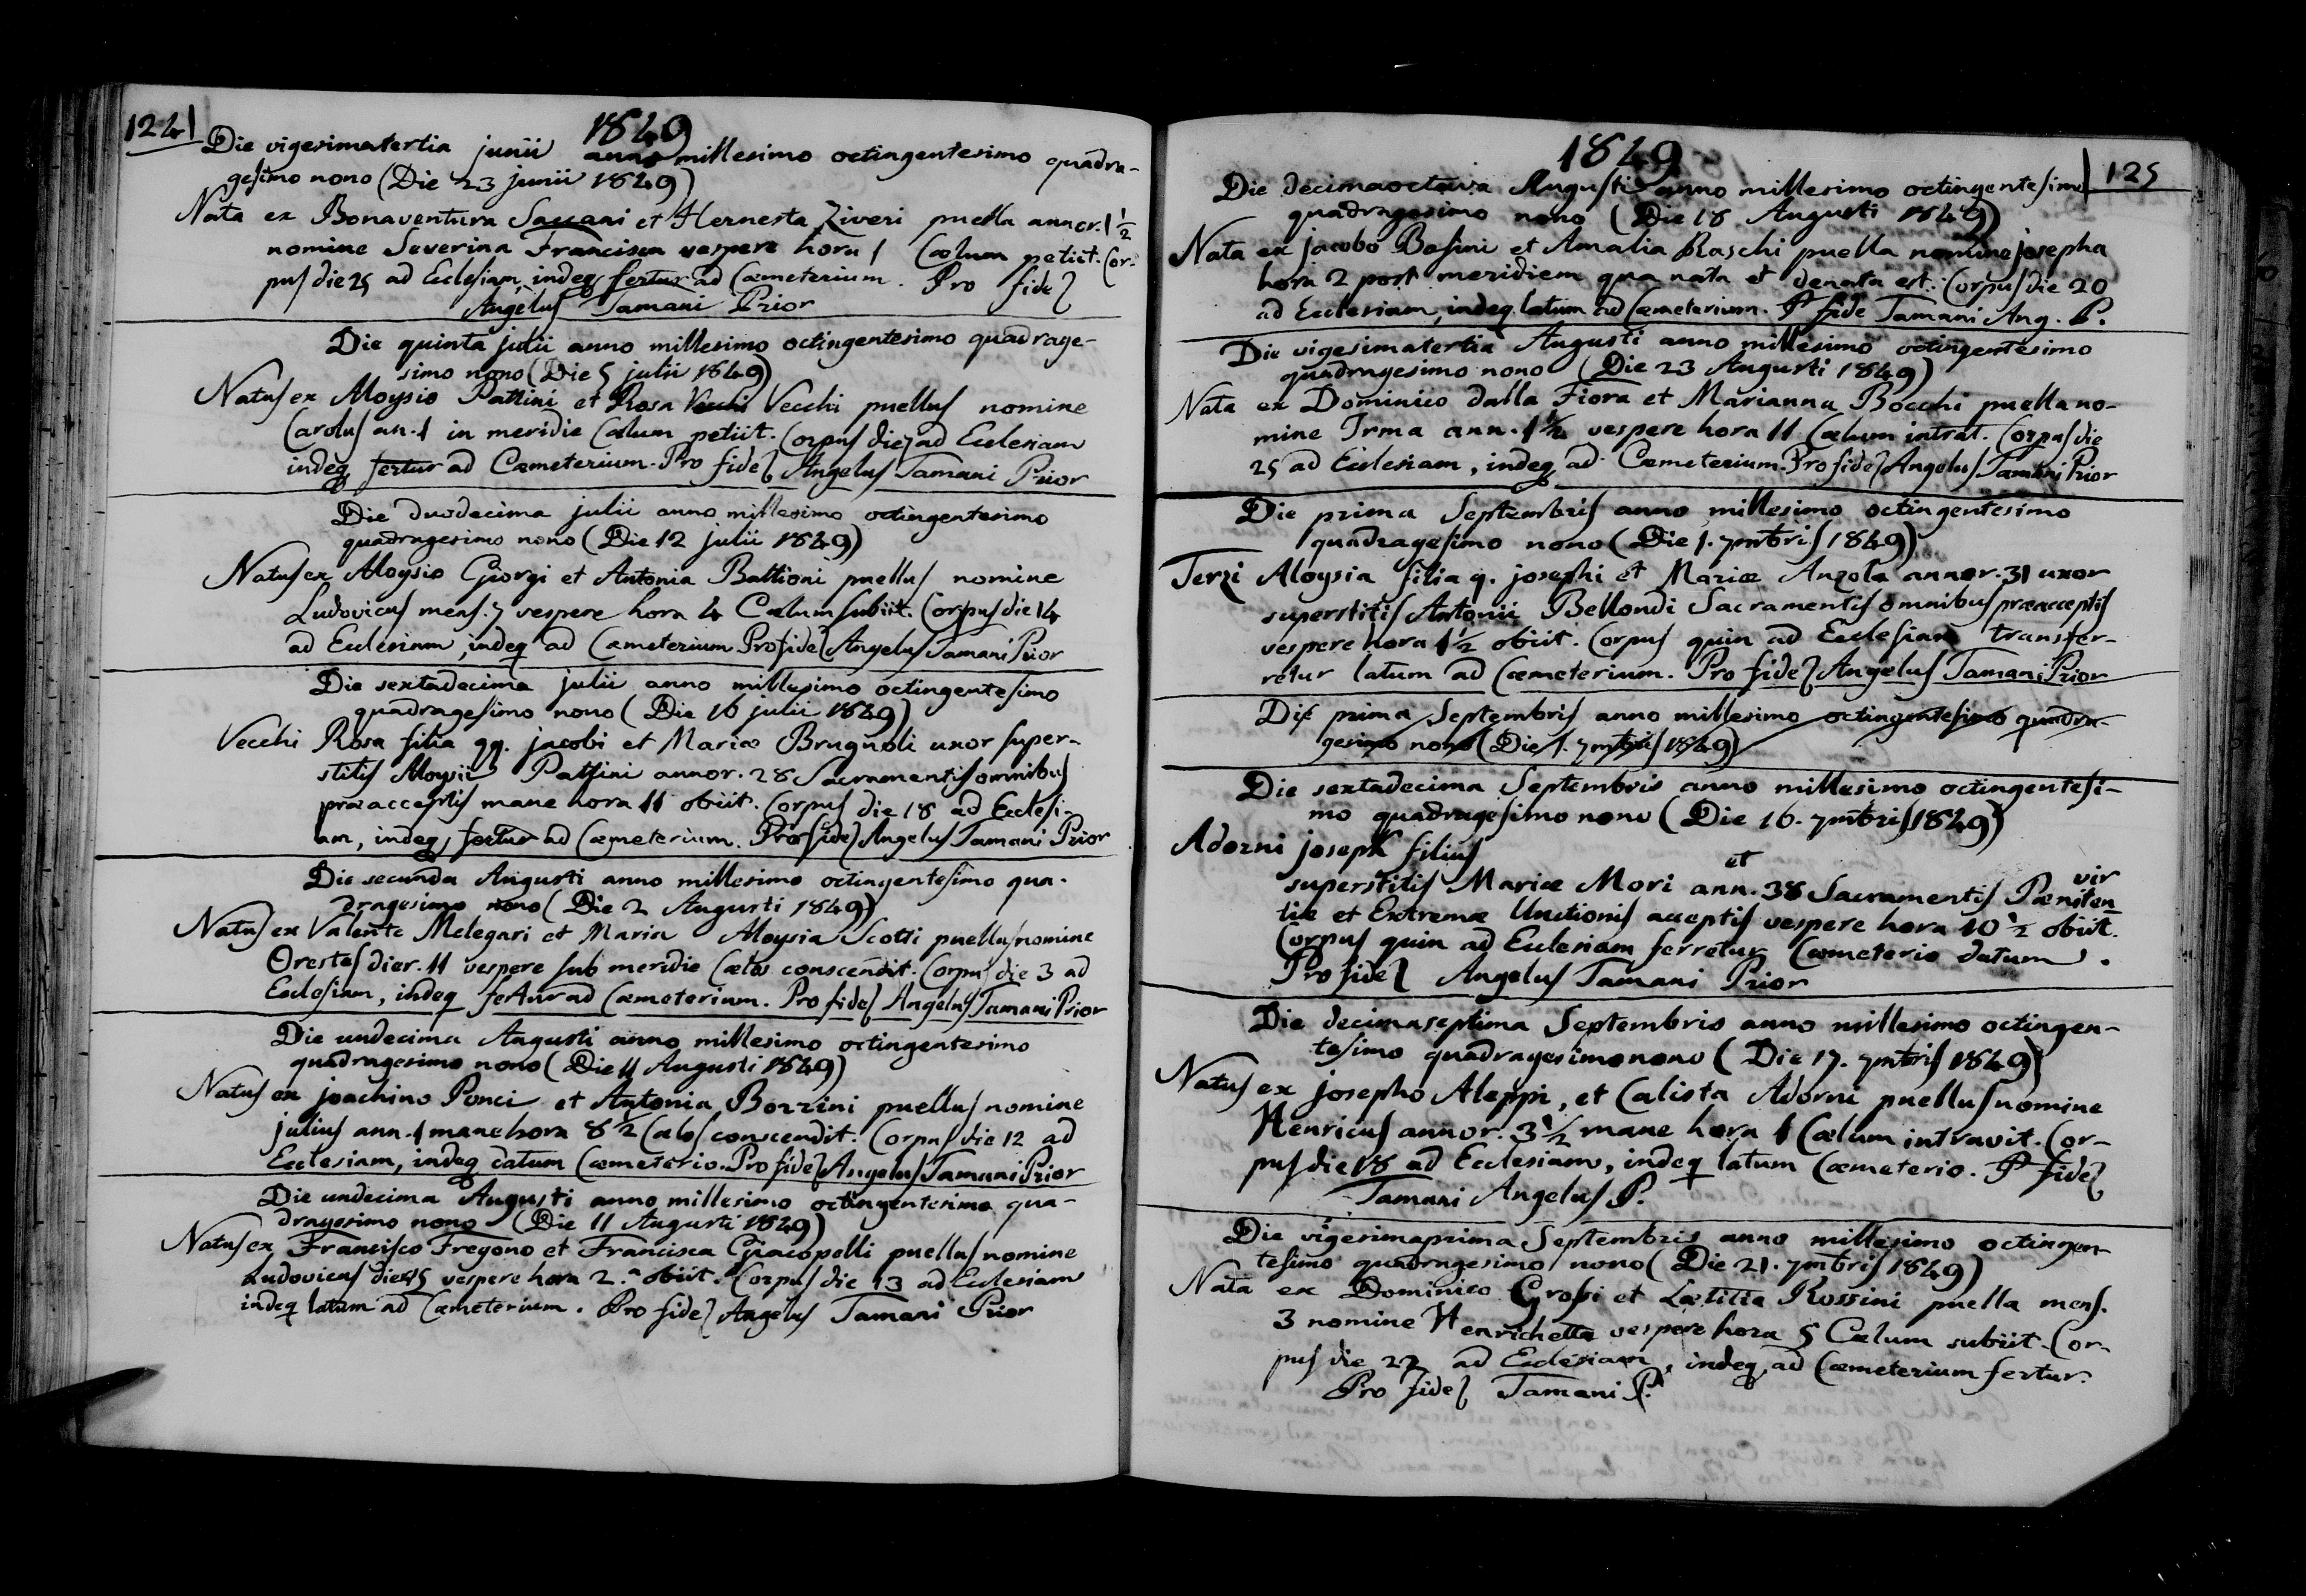 124
1849
Die vigesimatertia junii anno millesimo octingentesimo quadra-
gesimo nono (Die 23 junii 1849)
Nata ex Bonaventura Saccani et Hernesta Ziveri puella annor. 1 1/2
nomine Severina Francisca vespere hora 1 Cœlum petiit. Cor-
pus die 25 ad Eclesiam, indeq fertur ad Cœmeterium. Pro fide
Angelus Tamani Prior
Die quinta julii anno millesimo octingentesimo quadrage-
simo nono (Die 5 julii 1849)
Natus ex Aloysio Pattini et Rosa Vecchi Vecchi puellus nomine
Carolus an. 1 in meridie Cœlum petiit. Corpus die 7 ad Eclesiam
indeq fertur ad Cœmeterium. Pro fide Angelus Tamani Prior
Die duodecima julii anno millesimo octingentesimo
quadragesimo nono (Die 12 julii 1849)
Natus ex Aloysio Giorgi et Antonia Battioni puellus nomine
Ludovicus mens. 7 vespere hora 4 Cœlum subiit. Corpus die 14
ad Eclesiam, indeq ad Cœmeterium Pro fide Angelus Tamani Prior
Die sextadecima julii anno millesimo octingentesimo
quadragesimo nono (Die 16 julii 1849)
Vecchi Rosa filia qq. jacobi et Mariæ Brugnoli uxor super-
stitis Aloysii Pattini annor. 28 Sacramentis omnibus
præacceptis mane hora 11 obiit. Corpus die 18 ad Eclesi-
am, indeq, fertur ad Cœmeterium. Pro fide Angelus Tamani Prior
Die secunda Augusti anno millesimo octingentesimo qua-
dragesimo nono (Die 2 Augusti 1849)
Natus ex Valente Melegari et Maria Aloysia Scotti puellus nomine
Orestes dier. 11 vespere sub meridie Cœlos conscendit. Corpus die 3 ad
Eclesiam, indeq fertur ad Cœmeterium. Pro fide Angelus Tamani Prior
Die undecima Augusti anno millesimo octingentesimo
quadragesimo nono (Die 11 Augusti 1849)
Natus ex joachino Ponci et Antonia Bozzini puellus nomine
julius ann. 1 mane hora 8 1/2 Cœlos conscendit. Corpus die 12 ad
Ecclesiam, indeq datum Cœmeterio. Pro fide Angelus Tamani Prior
Die undecima Augusti anno millesimo octingentesimo qua-
dragesimo nono (Die 11 Augusti 1849)
Natus ex Francisco Fregono et Francisca Giacopelli puellus nomine
Ludovicus vespere hora 2.ª obiit. Corpus die 13 ad Eclesiam
indeq latum ad Cœmeterium. Pro fide Angelus Tamani Prior
125
1849
Die decimaoctava Augusti anno millesimo octingentesimo
quadragesimo nono (Die 18 Augusti 1849)
Nata ex jacobo Bosini et Amalia Raschi puella nomine josepha
hora 2 post meridiem qua nata et denata est. Corpus die 20
ad Ecclesiam, indeq. latum ad Cœmeterium. P fide Tamani Ang. P.
Die vigesimatertia Augusti anno millesimo octingentesimo
quadragesimo nono (Die 23 Augusti 1849)
Nata ex Dominico dalla Fiora et Marianna Bocchi puella no-
mine Irma ann. 1 1/2 vespere hora 11 Cœlum intrat. Corpus die
25 ad Eclesiam, indeq ad Cœmeterium. Pro fide Angelus Tamani Prior
Die prima Septembris anno millesimo octingentesimo
quadragesimo nono (Die 1. 7mbris 1849)
Terzi Aloysia filia q. josephi et Mariæ Anzola annor. 31 uxor
superstitis Antonii Bellondi Sacramentis omnibus præacceptis
vespere hora 1 1/2 obiit. Corpus quin ad Ecclesiam transfer-
retur latum ad Cœmeterium. Pro fide Angelus Tamani Prior
Die prima Septembris anno millesimo octingentesimo quadra-
gesimo nono (Die 1. 7mbris 1849)
Die sextadecima Septembris anno millesimo octingentesi-
mo quadragesimo nono (Die 16. 7mbris 1849)
Adorni joseph filius
et vir
superstitis Mariæ Mori ann. 38 Sacramentis Pœniten
tiæ et Extremæ Unctionis acceptis vespere hora 10 1/2 obiit.
Corpus quin ad Ecclesiam ferretur Cœmeterio datum.
Pro fide Angelus Tamani Prior
Die decimaseptima Septembris anno millesimo octingen-
tesimo quadragesimo nono (Die 17. 7mbris 1849)
Natus ex josepho Aleppi, et Calista Adorni puellus nomine
Henricus annor. 3 1/2 mane hora 1 Cœlum intravit. Cor-
pus die 18 ad Ecclesiam, indeq latum Cœmeterio. P fide
Tamani Angelus P.
Die vigesimaprima Septembris anno millesimo octingen-
tesimo quadragesimo nono (Die 21. 7mbris 1849)
Nata ex Dominico Grossi et Lætitia Rossini puella mens.
3 nomine Henrichetta vespere hora 5 Cœlum subiit. Cor-
pus die 22 ad Eclesiam, indeq, ad Cœmeterium fertur.
Pro fide Tamani P.